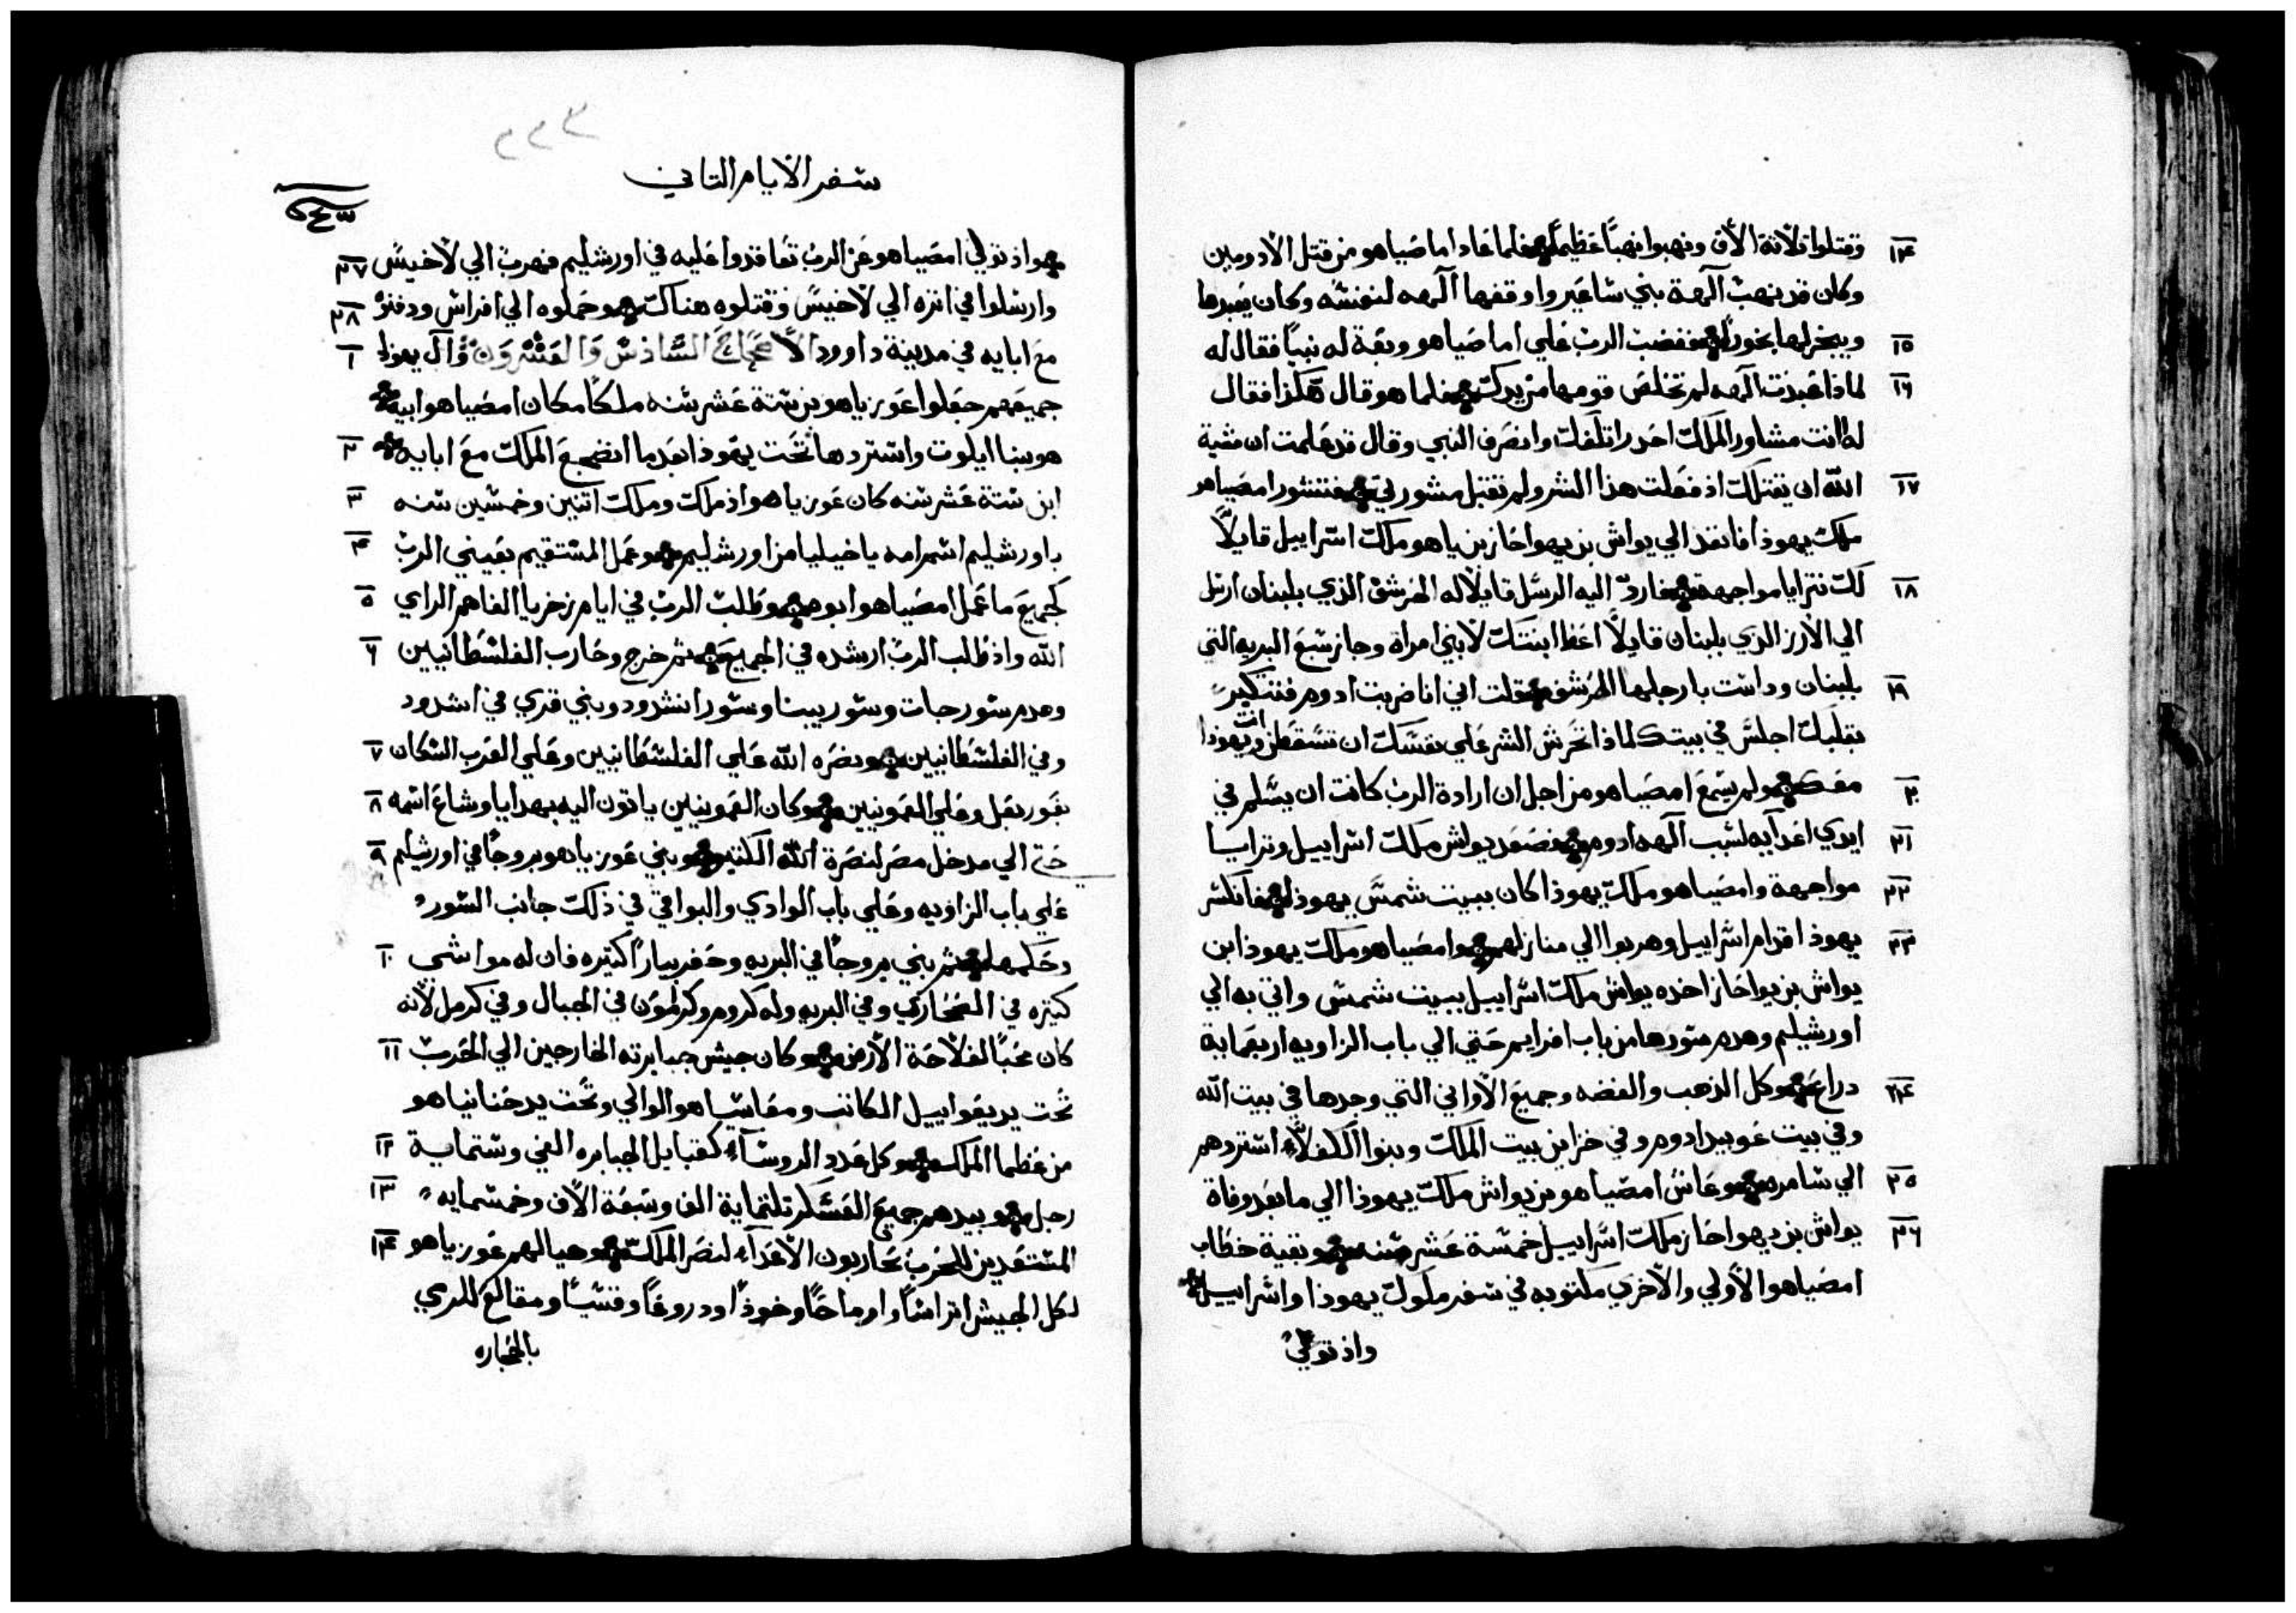 ١٤ وقتلوا ثلاثة الاف ونهبوا نهبًا عظيمًا فلما عاد اماصياهو من قتل الادوميين
وكان قد نهب آلهة بني ساعير واوقفها آلهه لنفسه وكان يعبدها
١٥ ويبخر لها بخورا فغضب الرب علي اماصياهو وبعة له نبيًا فقال له
١٦ لماذا عبدت آلهه لم تخلص قومها من يدك فلما هو قال هكذا فقال
له انت مشاور الملك احدر اتلفك وانصرف النبي وقال قد علمت ان مشية
١٧ الله ان يقتلك اذ فعلت هذا الشر ولم تقبل مشورتي فتشور امصياهو
ملك يهوذا فانفد الي يواش بن يهواحاز بن ياهو ملك اسراييل قايلًا
١٨ لك نترايا مواجهة فارد اليه الرسل قايلا له الخرشف الذي بلبنان ارسل
الي الارز الدي بلبنان قايلًا اعط ابنتك لابني امراة وجاز سبع البريه التي
١٩ بلبنان وداست بارجلها الخرشف قلت اني انا ضربت ادوم فتتكبر
بقلبك اجلس في بيتك لماذا تحرش الشر علي نفسك ان تسقط انت ويهوذا
٢٠ معك ولم يسمع امصياهو من اجل ان ارادة الرب كانت ان يسلم في
٢١ ايدي اعدآيه لسبب آلهه ادوم فصعد يواش ملك اسراييل وترايا
٢٢ مواجهة وامصياهو ملك يهوذا كان ببيت شمس يهوذا فانكسر
٢٣ يهوذا قدام اسراييل وهربوا الي منازلهم وامصياهو ملك يهوذا ابن
يواش بن يواحاز اخده يواش ملك اسراييل ببيت شمس واتي به الي
اورشليم وهدم سورها من باب افرايم حتي الي باب الزاويه اربعماية
٢٤ دراع وكل الذهب والفضه وجميع الاواني التي وجدها في بيت الله
وفي بيت عوبيد ادوم وفي خزاين بيت الملك وبنوا الكفلآء استردهم
٢٥ الي سامره وعاش امصياهو بن يواش ملك يهوذا الي ما بعد وفاة
٢٦ يواش بن يهواحاز ملك اسراييل خمسة عشر سنه وبقية خطاب
امصياهو الاولي والاخري مكتوبه في سفر ملوك يهوذا واسراييل
واذ تولي
٢٢٣
سفر الايام التاني
٢٧ واذ تولي امصياهو عن الرب تعاقدوا عليه في اورشليم فهرب الي لاخيس
٢٨ وارسلوا في اتره الي لاخيس وقتلوه هناك وحملوه الي افراس ودفنو
١ مع ابايه في مدينة داوود الاصحاح السادس والعشرون وآل يهوذا
جميعهم جعلوا عوزياهو بن ستة عشر سنه ملكًا مكان امصياهو ابيه
٢ هو بنا ايلوت واستردها تحت يهوذا بعد ما انضجع الملك مع ابايه
٣ ابن ستة عشر سنه كان عوزياهو اذ ملك وملك اتنين وخمسين سنه
٤ باورشليم اسم امه ياخيليا من اورشليم وعمل المستقيم بعيني الرب
٥ كجميع ما عمل امصياهو ابوه وطلب الرب في ايام زخريا الفاهم الراي
٦ الله واذ طلب الرب ارشده في الجميع ثم خرج وحارب الفلسطانيين
وهدم سور جات وسور يبنا وسور اشدود وبني قري في اشدود
٧ وفي الفلسطانيين ونصره الله علي الفلسطانيين وعلي العرب السكان
٨ بغور بعل وعلي العمونيين وكان العمونيين ياتون اليه بهدايا وشاع اسمه
٩ حتي الي مدخل مصر لنصرة الله الكتيره وبني عوزياهو بروجًا في اورشليم
علي باب الزاويه وعلي باب الوادي والبواقي في ذلك جانب السور
١٠ وحكمها ثم بني بروجًا في البريه وحفر بيارًا كتيره فان له مواشي
كتيره في الصحاري وفي البريه وله كروم وكرامون في الجبال وفي كرمل لانه
١١ كان محبًا لفلاحة الارض وكان جيش جبابرته الخارجين الي الحرب
تحت يد يعواييل الكاتب ومعاسياهو الوالي وتحت يد حنانياهو
١٢ من عظما الملك وكل عدد الروسآء كقبايل الجبابره الفي وستماية
١٣ رجل وبيدهم جميع العسكر تلتماية الف وسبعة الاف وخمسمايه
١٤ المستعدين للحرب يحاربون الاعدآء لنصر الملك وهيا لهم عوزياهو
لكل الجيش اتراسًا وارماحًا وخوذًا ودروعًا وقسيًا ومقاليع للرمي
بالحجاره